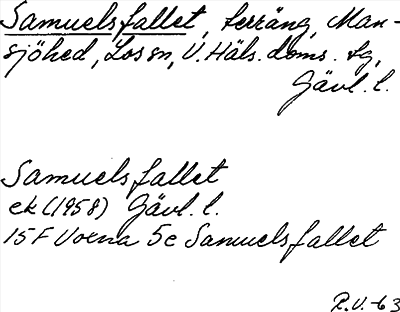 Samuelsfallet, terräng, Man-
sjöhed, Lossn, V. Häls. doms. tg,
Gävl. l.
Samuelsfallet
ek (1958) Gävl. l.
15F Voxna 5e Samuelsfallet
R.V. -63